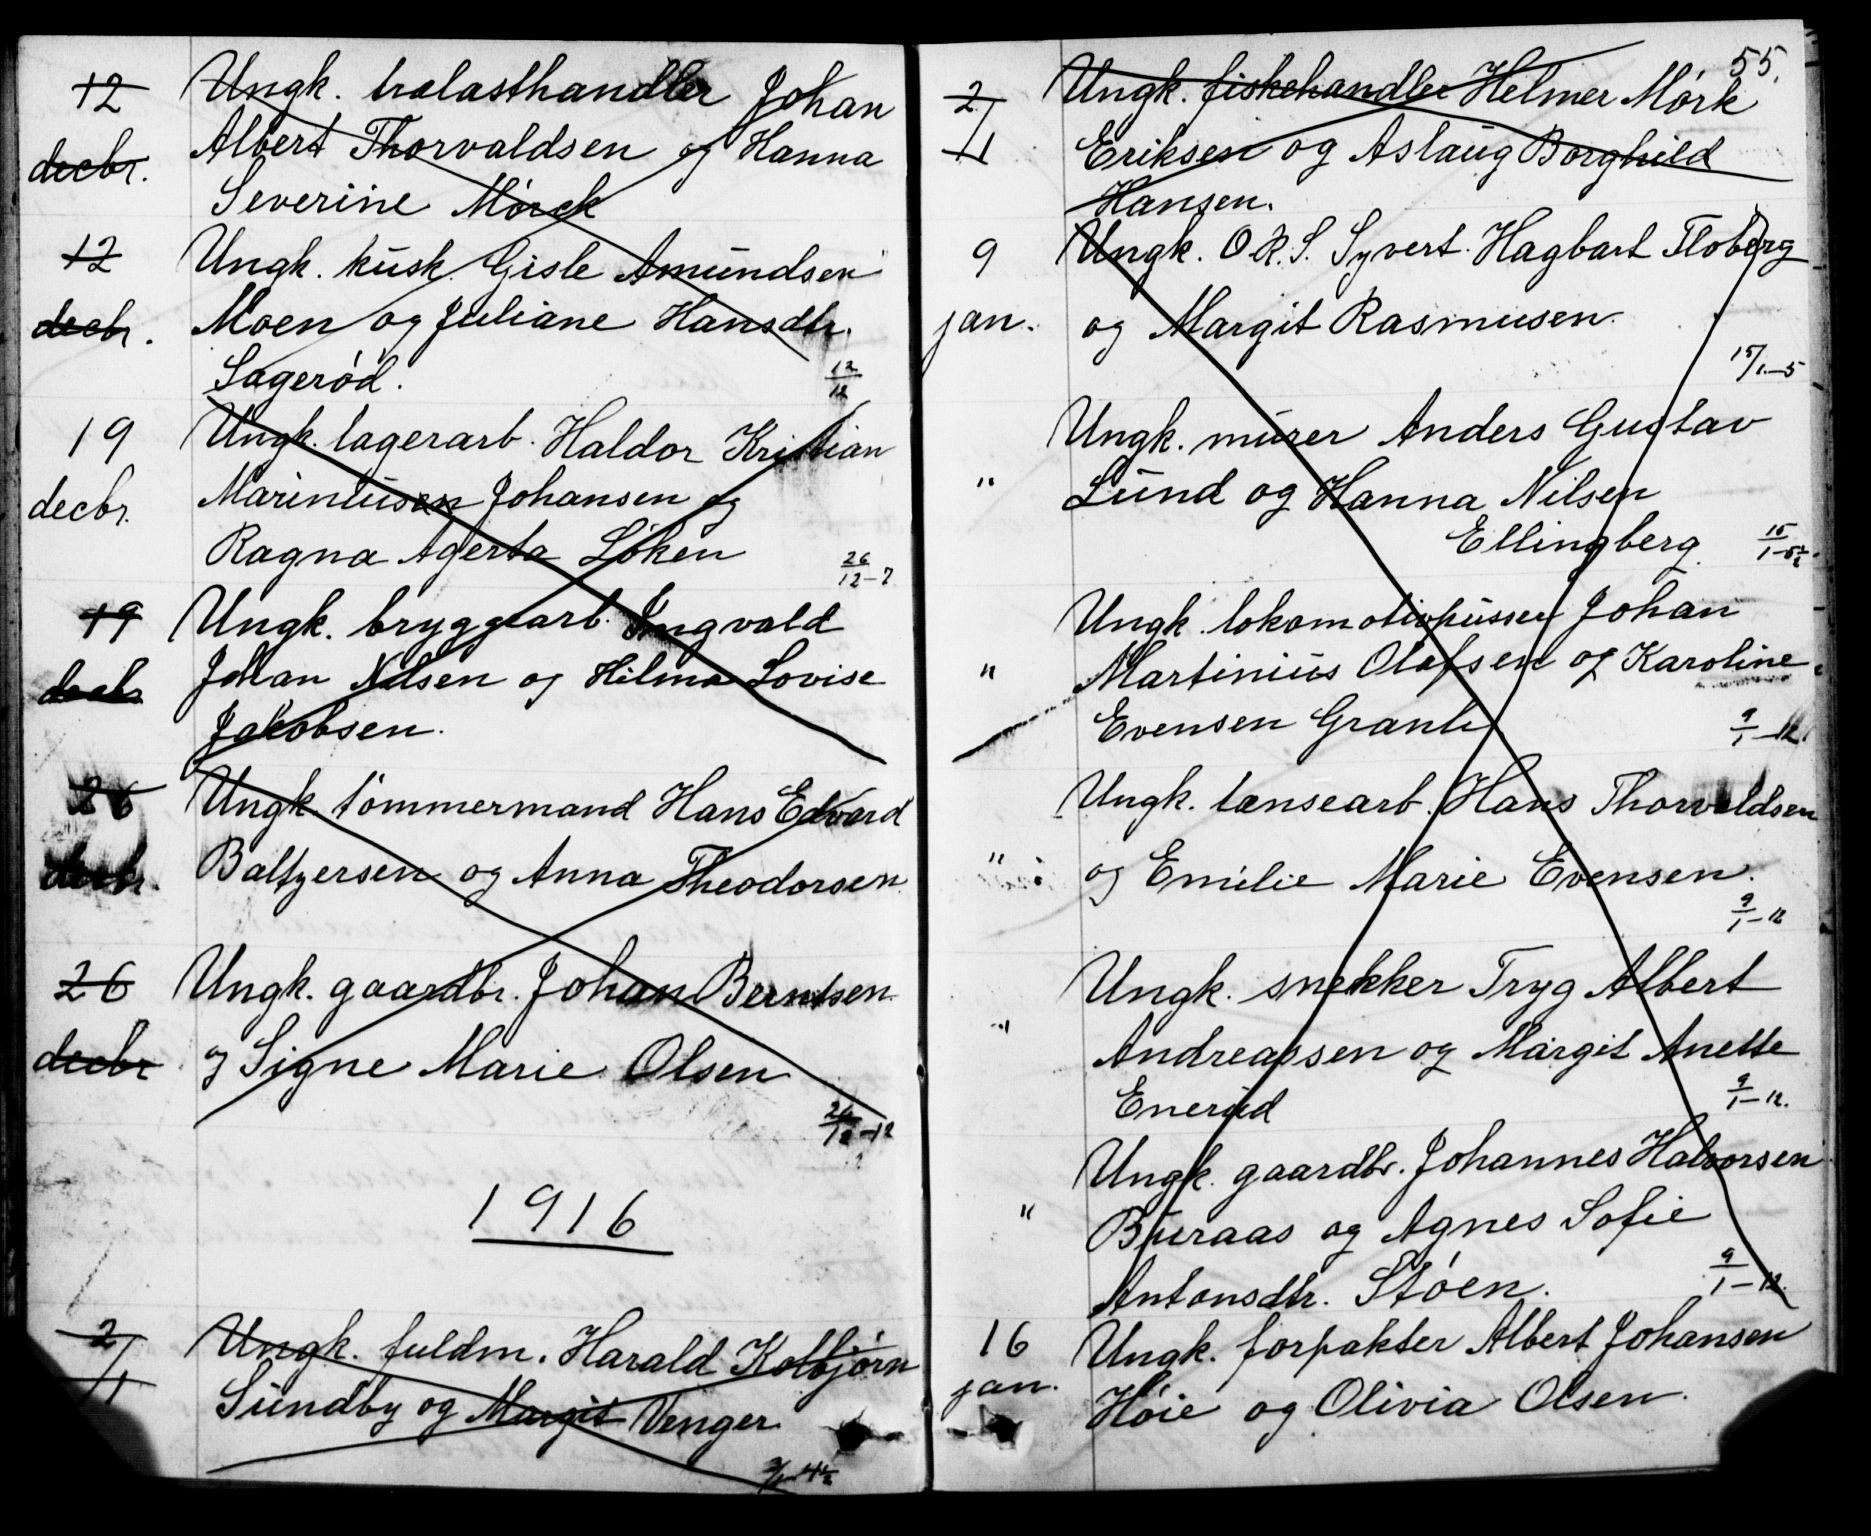 12 Ungk. trælasthandler Johan
decbr. Albert Thorvaldsen og Hanna
Severine Mørck
12 Ungk. kusk Gisle Amundsen
decbr. Moen og Juliane Hansdtr.
Sagerød. 12/12
19 Ungk. lagerarb. Haldor Kristian
decbr. Mariniusen Johansen og
Ragna Agerta Løken 26/12-7
19 Ungk. bryggearb. Ingvald
decbr Johan Nilsen og Hilma Lovise
Jakobsen.
26 Ungk. tömmermand Hans Edvard
decbr. Baltzersen og Anna Theodorsen.
26 Ungk. gaardbr. Johan Berntsen
decbr og Signe Marie Olsen
26/12-12
1916
2/1 Ungk. fuldm. Harald Kolbjørn
Sundby og Margit Venger
2/1 4½
55.
2/1 Ungk. fiskehandler Helmer Mørk
Eriksen og Aslaug Borghild
Hansen.
9 Ungk. O.R.S. Syvert Hagbart Floberg
jan. og Margit Rasmusen.
15/1-5
Ungk. murer Anders Gustav
" Lund og Hanna Nilsen
Ellingberg 15/1-5½.
Ungk. lokomotivpusser Johan
" Martinius Olafsen og Karoline
Evensen Granli 9/1-12.
Ungk. lænsearb. Hans Thorvaldsen
" og Emilie Marie Evensen.
9/1-12
Ungk. snekker Tryg Albert
" Andreassen og Margit Anette
Enerud 9/1-12.
Ungk. gaardbr. Johannes Halvorsen
" Buraas og Agnes Sofie
Antonsdtr. Støen. 9/1-12.
16 Ungk. forpakter Albert Johansen
jan. Høie og Olivia Olsen.